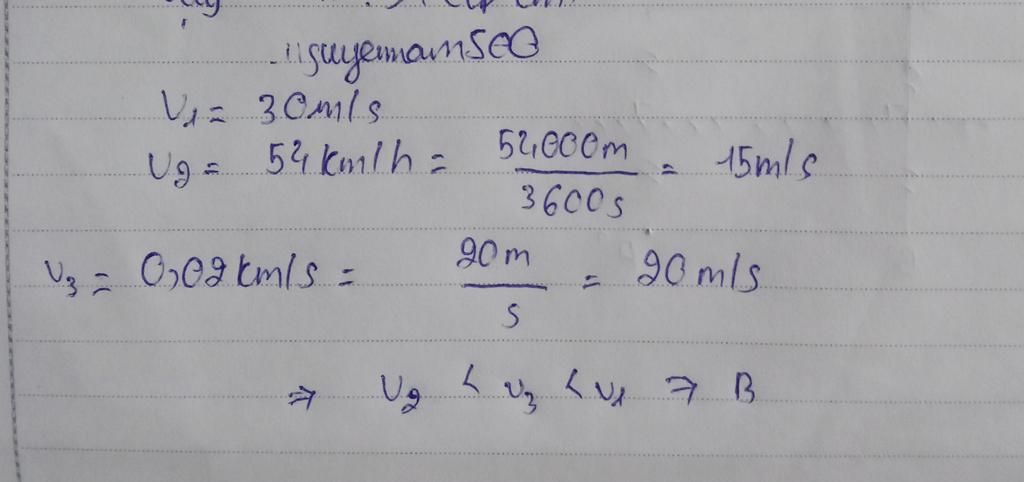 nguyennam500
V1 = 30m/s
V2 = 54km/h = 54000m / 3600s = 15m/s
V3 = 0,02km/s = 20m / s = 20m/s
⇒ V2 < V3 < V1 ⇒ B